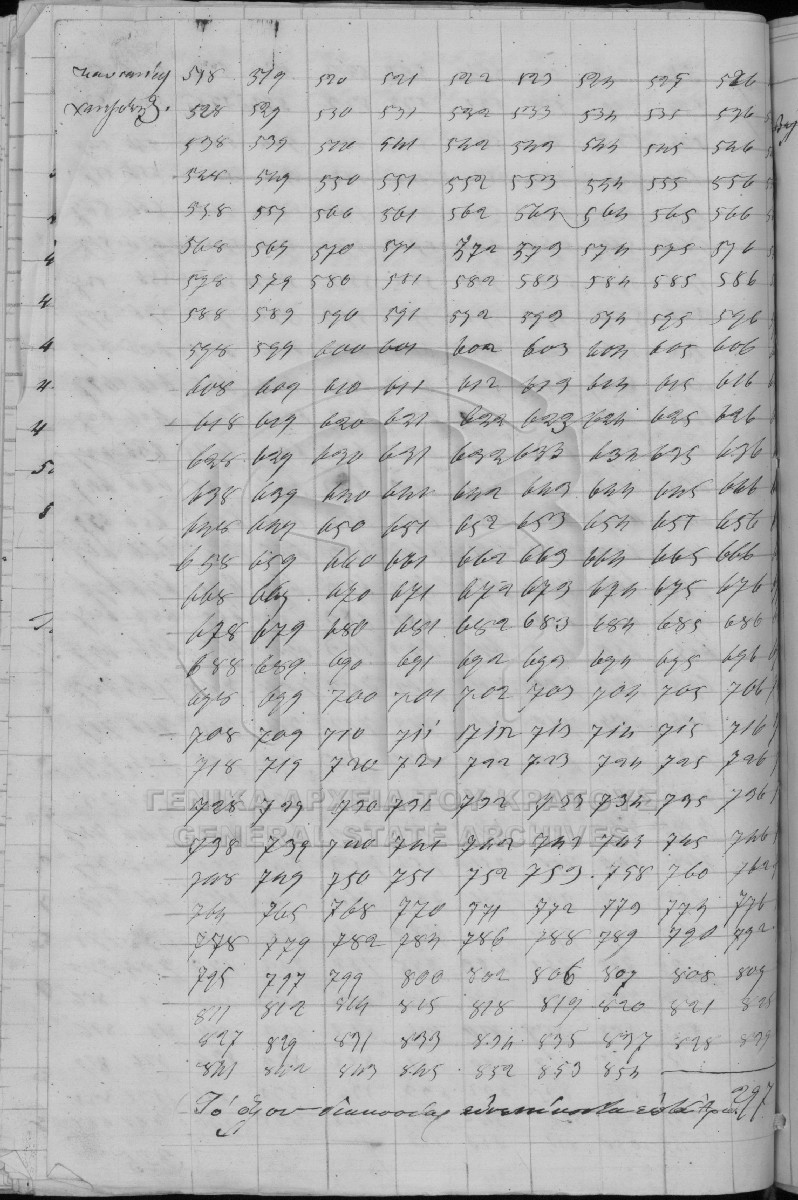 518 519 520 521 522 523 524 525 526
528 529 530 531 532 533 534 535 536
538 539 540 541 542 543 544 545 546
548 549 550 551 552 553 554 555 556
558 559 560 561 562 563 564 565 566
568 569 570 571 572 573 574 575 576
578 579 580 581 582 583 584 585 586
588 589 590 591 592 593 594 595 596
598 599 600 601 602 603 604 605 606
608 609 610 611 612 613 614 615 616
618 619 620 621 622 623 624 625 626
628 629 630 631 632 633 634 635 636
638 639 640 641 642 643 644 645 646
648 649 650 651 652 653 654 655 656
658 659 660 661 662 663 664 665 666
668 669 670 671 672 673 674 675 676
678 679 680 681 682 683 684 685 686
688 689 690 691 692 693 694 695 696
698 699 700 701 702 703 704 705 706
708 709 710 711 712 713 714 715 716
718 719 720 721 722 723 724 725 726
728 729 730 731 732 733 734 735 736
ΓΕΝΙΚΑ ΑΡΧΕΙΑ ΤΟΥ ΚΡΑΤΟΥΣ
GENERAL STATE ARCHIVES
738 739 740 741 742 743 745 746
748 749 750 751 752 753 758 760 762
764 765 768 770 771 772 773 774 776
778 779 782 784 786 788 789 790 792
795 797 799 800 802 806 807 808 809
811 812 814 815 818 819 820 821 825
827 829 831 833 834 835 837 838 839
841 842 843 845 852 853 854
Τό όλον διακοσίαι 297